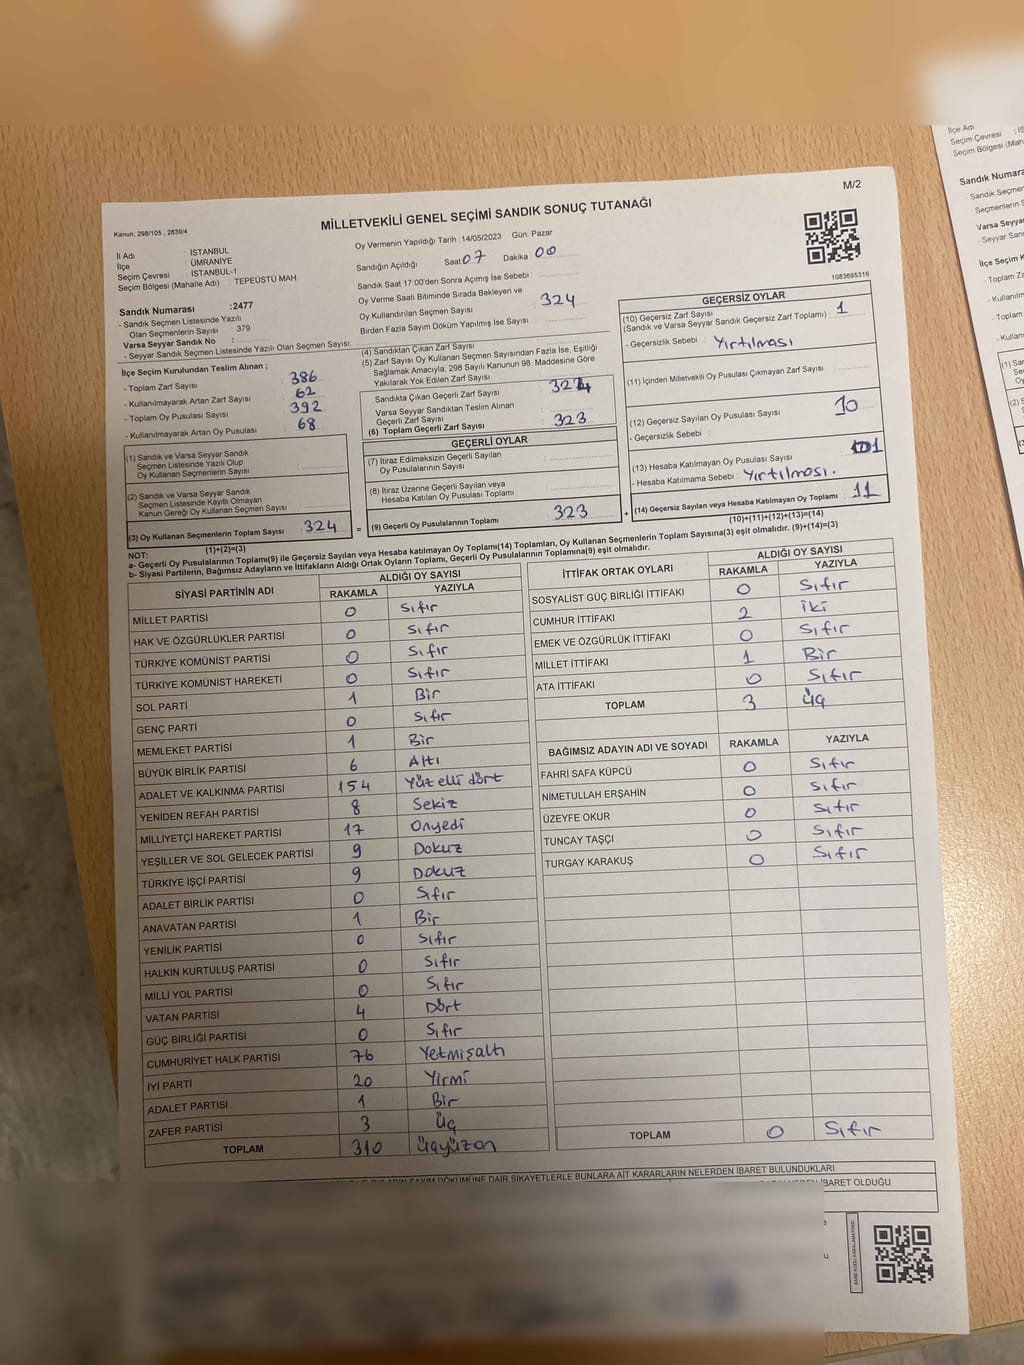 M/2
MİLLETVEKİLİ GENEL SEÇİMİ SANDIK SONUÇ TUTANAĞI
Kanun: 298/105 , 2839/4
İl Adı : İSTANBUL
İlçe : ÜMRANİYE
Seçim Çevresi : İSTANBUL-1
Seçim Bölgesi (Mahalle Adı) : TEPEÜSTÜ MAH
Sandık Numarası :2477
- Sandık Seçmen Listesinde Yazılı
Olan Seçmenlerin Sayısı : 379
Varsa Seyyar Sandık No :
- Seyyar Sandık Seçmen Listesinde Yazılı Olan Seçmen Sayısı:
Oy Vermenin Yapıldığı Tarih :14/05/2023 Gün: Pazar
Sandığın Açıldığı Saat 07 Dakika 00
Sandık Saat 17:00'den Sonra Açımış İse Sebebi :
Oy Verme Saati Bitiminde Sırada Bekleyen ve
Oy Kullandırılan Seçmen Sayısı : 324
Birden Fazla Sayım Döküm Yapılmış İse Sayısı :
1083695316
İlçe Seçim Kurulundan Teslim Alınan ;
- Toplam Zarf Sayısı : 386
- Kullanılmayarak Artan Zarf Sayısı : 62
- Toplam Oy Pusulası Sayısı : 392
- Kullanılmayarak Artan Oy Pusulası : 68
(1) Sandık ve Varsa Seyyar Sandık
Seçmen Listesinde Yazılı Olup
Oy Kullanan Seçmenlerin Sayısı :
(2) Sandık ve Varsa Seyyar Sandık
Seçmen Listesinde Kayıtlı Olmayan
Kanun Gereği Oy Kullanan Seçmen Sayısı :
(3) Oy Kullanan Seçmenlerin Toplam Sayısı : 324
(1)+(2)=(3)
(4) Sandıktan Çıkan Zarf Sayısı :
(5) Zarf Sayısı Oy Kullanan Seçmen Sayısından Fazla İse, Eşitliği
Sağlamak Amacıyla, 298 Sayılı Kanunun 98. Maddesine Göre
Yakılarak Yok Edilen Zarf Sayısı :
Sandıkta Çıkan Geçerli Zarf Sayısı : 324
Varsa Seyyar Sandıktan Teslim Alınan
Geçerli Zarf Sayısı :
(6) Toplam Geçerli Zarf Sayısı : 323
GEÇERLİ OYLAR
(7) İtiraz Edilmeksizin Geçerli Sayılan
Oy Pusulalarının Sayısı :
(8) İtiraz Üzerine Geçerli Sayılan veya
Hesaba Katılan Oy Pusulası Toplamı :
= (9) Geçerli Oy Pusulalarının Toplamı : 323
GEÇERSİZ OYLAR
(10) Geçersiz Zarf Sayısı
(Sandık ve Varsa Seyyar Sandık Geçersiz Zarf Toplamı) : 1
- Geçersizlik Sebebi : Yırtılması
(11) İçinden Milletvekili Oy Pusulası Çıkmayan Zarf Sayısı :
(12) Geçersiz Sayılan Oy Pusulası Sayısı : 10
- Geçersizlik Sebebi :
(13) Hesaba Katılmayan Oy Pusulası Sayısı : 01
- Hesaba Katılmama Sebebi : Yırtılması.
+ (14) Geçersiz Sayılan veya Hesaba Katılmayan Oy Toplamı : 11
(10)+(11)+(12)+(13)=(14)
NOT:
a- Geçerli Oy Pusulalarının Toplamı(9) ile Geçersiz Sayılan veya Hesaba katılmayan Oy Toplamı(14) Toplamları, Oy Kullanan Seçmenlerin Toplam Sayısına(3) eşit olmalıdır. (9)+(14)=(3)
b- Siyasi Partilerin, Bağımsız Adayların ve İttifakların Aldığı Ortak Oyların Toplamı, Geçerli Oy Pusulalarının Toplamına(9) eşit olmalıdır.
SİYASİ PARTİNİN ADI ALDIĞI OY SAYISI
RAKAMLA YAZIYLA
MİLLET PARTİSİ 0 Sıfır
HAK VE ÖZGÜRLÜKLER PARTİSİ 0 Sıfır
TÜRKİYE KOMÜNİST PARTİSİ 0 Sıfır
TÜRKİYE KOMÜNİST HAREKETİ 0 Sıfır
SOL PARTİ 1 Bir
GENÇ PARTİ 0 Sıfır
MEMLEKET PARTİSİ 1 Bir
BÜYÜK BİRLİK PARTİSİ 6 Altı
ADALET VE KALKINMA PARTİSİ 154 Yüz elli dört
YENİDEN REFAH PARTİSİ 8 Sekiz
MİLLİYETÇİ HAREKET PARTİSİ 17 Onyedi
YEŞİLLER VE SOL GELECEK PARTİSİ 9 Dokuz
TÜRKİYE İŞÇİ PARTİSİ 9 Dokuz
ADALET BİRLİK PARTİSİ 0 Sıfır
ANAVATAN PARTİSİ 1 Bir
YENİLİK PARTİSİ 0 Sıfır
HALKIN KURTULUŞ PARTİSİ 0 Sıfır
MİLLİ YOL PARTİSİ 0 Sıfır
VATAN PARTİSİ 4 Dört
GÜÇ BİRLİĞİ PARTİSİ 0 Sıfır
CUMHURİYET HALK PARTİSİ 76 Yetmişaltı
İYİ PARTİ 20 Yirmi
ADALET PARTİSİ 1 Bir
ZAFER PARTİSİ 3 Üç
TOPLAM 310 Üçyüzon
İTTİFAK ORTAK OYLARI ALDIĞI OY SAYISI
RAKAMLA YAZIYLA
SOSYALİST GÜÇ BİRLİĞİ İTTİFAKI 0 Sıfır
CUMHUR İTTİFAKI 2 İki
EMEK VE ÖZGÜRLÜK İTTİFAKI 0 Sıfır
MİLLET İTTİFAKI 1 Bir
ATA İTTİFAKI 0 Sıfır
TOPLAM 3 Üç
BAĞIMSIZ ADAYIN ADI VE SOYADI RAKAMLA YAZIYLA
FAHRİ SAFA KÜPCÜ 0 Sıfır
NİMETULLAH ERŞAHİN 0 Sıfır
ÜZEYFE OKUR 0 Sıfır
TUNCAY TAŞÇI 0 Sıfır
TURGAY KARAKUŞ 0 Sıfır
TOPLAM 0 Sıfır
SAYIM DÖKÜMÜNE DAİR ŞİKAYETLERLE BUNLARA AİT KARARLARIN NELERDEN İBARET BULUNDUKLARI
İBARET OLDUĞU
İlçe Adı
Seçim Çevresi : İS
Seçim Bölgesi (Mah
Sandık Numara
- Sandık Seçme
Seçmenlerin S
Varsa Seyya
- Seyyar San
İlçe Seçim K
- Toplam Za
- Kullanılm
- Toplam
- Kullan